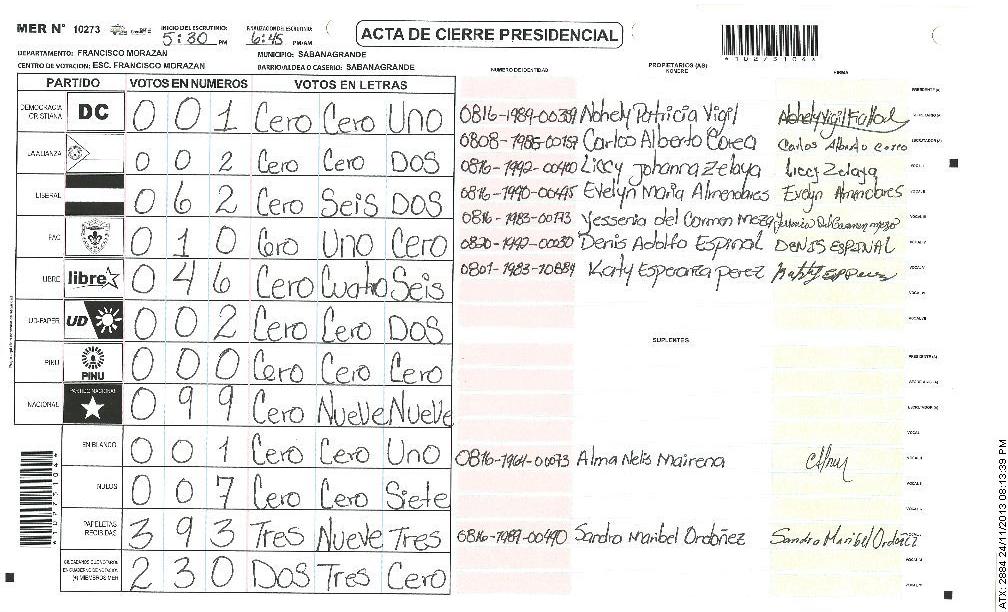 MER N° 10273
INICIO DEL ESCRUTINIO: 5:30 PM
FINALIZACION DEL ESCRUTINIO: 6:45 PM/AM
ACTA DE CIERRE PRESIDENCIAL
DEPARTAMENTO: FRANCISCO MORAZAN
MUNICIPIO: SABANAGRANDE
CENTRO DE VOTACION: ESC. FRANCISCO MORAZAN
BARRIO/ALDEA O CASERIO: SABANAGRANDE
PARTIDO VOTOS EN NUMEROS VOTOS EN LETRAS
NUMERO DE IDENTIDAD PROPIETARIOS (AS) NOMBRE FIRMA
DEMOCRACIA CRISTIANA DC 0 0 1 Cero Cero Uno
LA ALIANZA 0 0 2 Cero Cero DOS
LIBERAL 0 6 2 Cero Seis DOS
PAC 0 1 0 Cero Uno Cero
LIBRE libre 0 4 6 Cero Cuatro Seis
UD-FAPER UD 0 0 2 Cero Cero DOS
PINU PINU 0 0 0 Cero Cero Cero
NACIONAL PARTIDO NACIONAL 0 9 9 Cero Nueve Nueve
EN BLANCO 0 0 1 Cero Cero Uno
NULOS 0 0 7 Cero Cero Siete
PAPELETAS RECIBIDAS 3 9 3 Tres Nueve Tres
2 3 0 DOS Tres Cero
PRESIDENTE (A)
0816-1989-00339 Nohely Patricia Vigil
0808-1985-00159 Carlos Alberto Corea Carlos Alberto Correa
0816-1992-00410 Liccy Johanna Zelaya Liccy Zelaya
0816-1990-00495 Evelyn Maria Almendares Evelyn Almendares
0816-1983-00173 Yessenia del Carmen Meza
0820-1992-00030 Denis Adolfo Espinal DENIS ESPINAL
0801-1983-10884 Katy Esperanza perez
SUPLENTES
PRESIDENTE (A)
0816-1964-00073 Alma Nelis Mairena
0816-1989-00490 Sandra Maribel Ordoñez Sandra Maribel Ordoñez
ATX: 2884 24/11/2013 08:13:39 PM